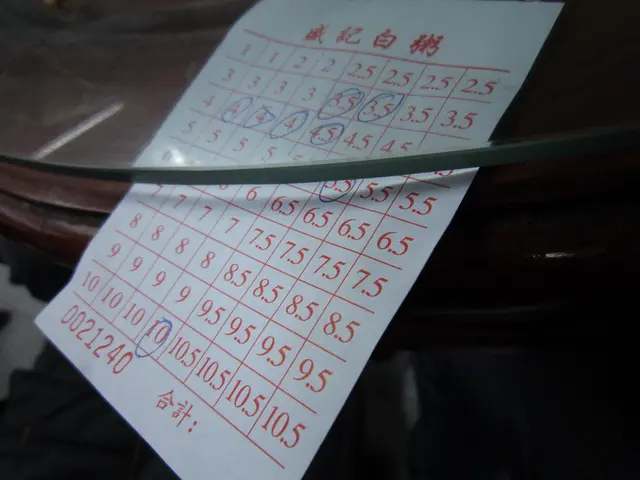 盛記白粥
1 1 2 2 2.5 2.5 2.5 2.5
3 3 3 3 3.5 3.5 3.5 3.5
4 4 4 4 4.5 4.5 4.5
5 5 5 5 5.5 5.5 5.5
6 6 6.5 6.5 6.5 6.5
7 7 7 7 7.5 7.5 7.5 7.5
8 8 8 8 8.5 8.5 8.5 8.5
9 9 9 9 9.5 9.5 9.5 9.5
10 10 10 10 10.5 10.5 10.5 10.5
0021240
合計：